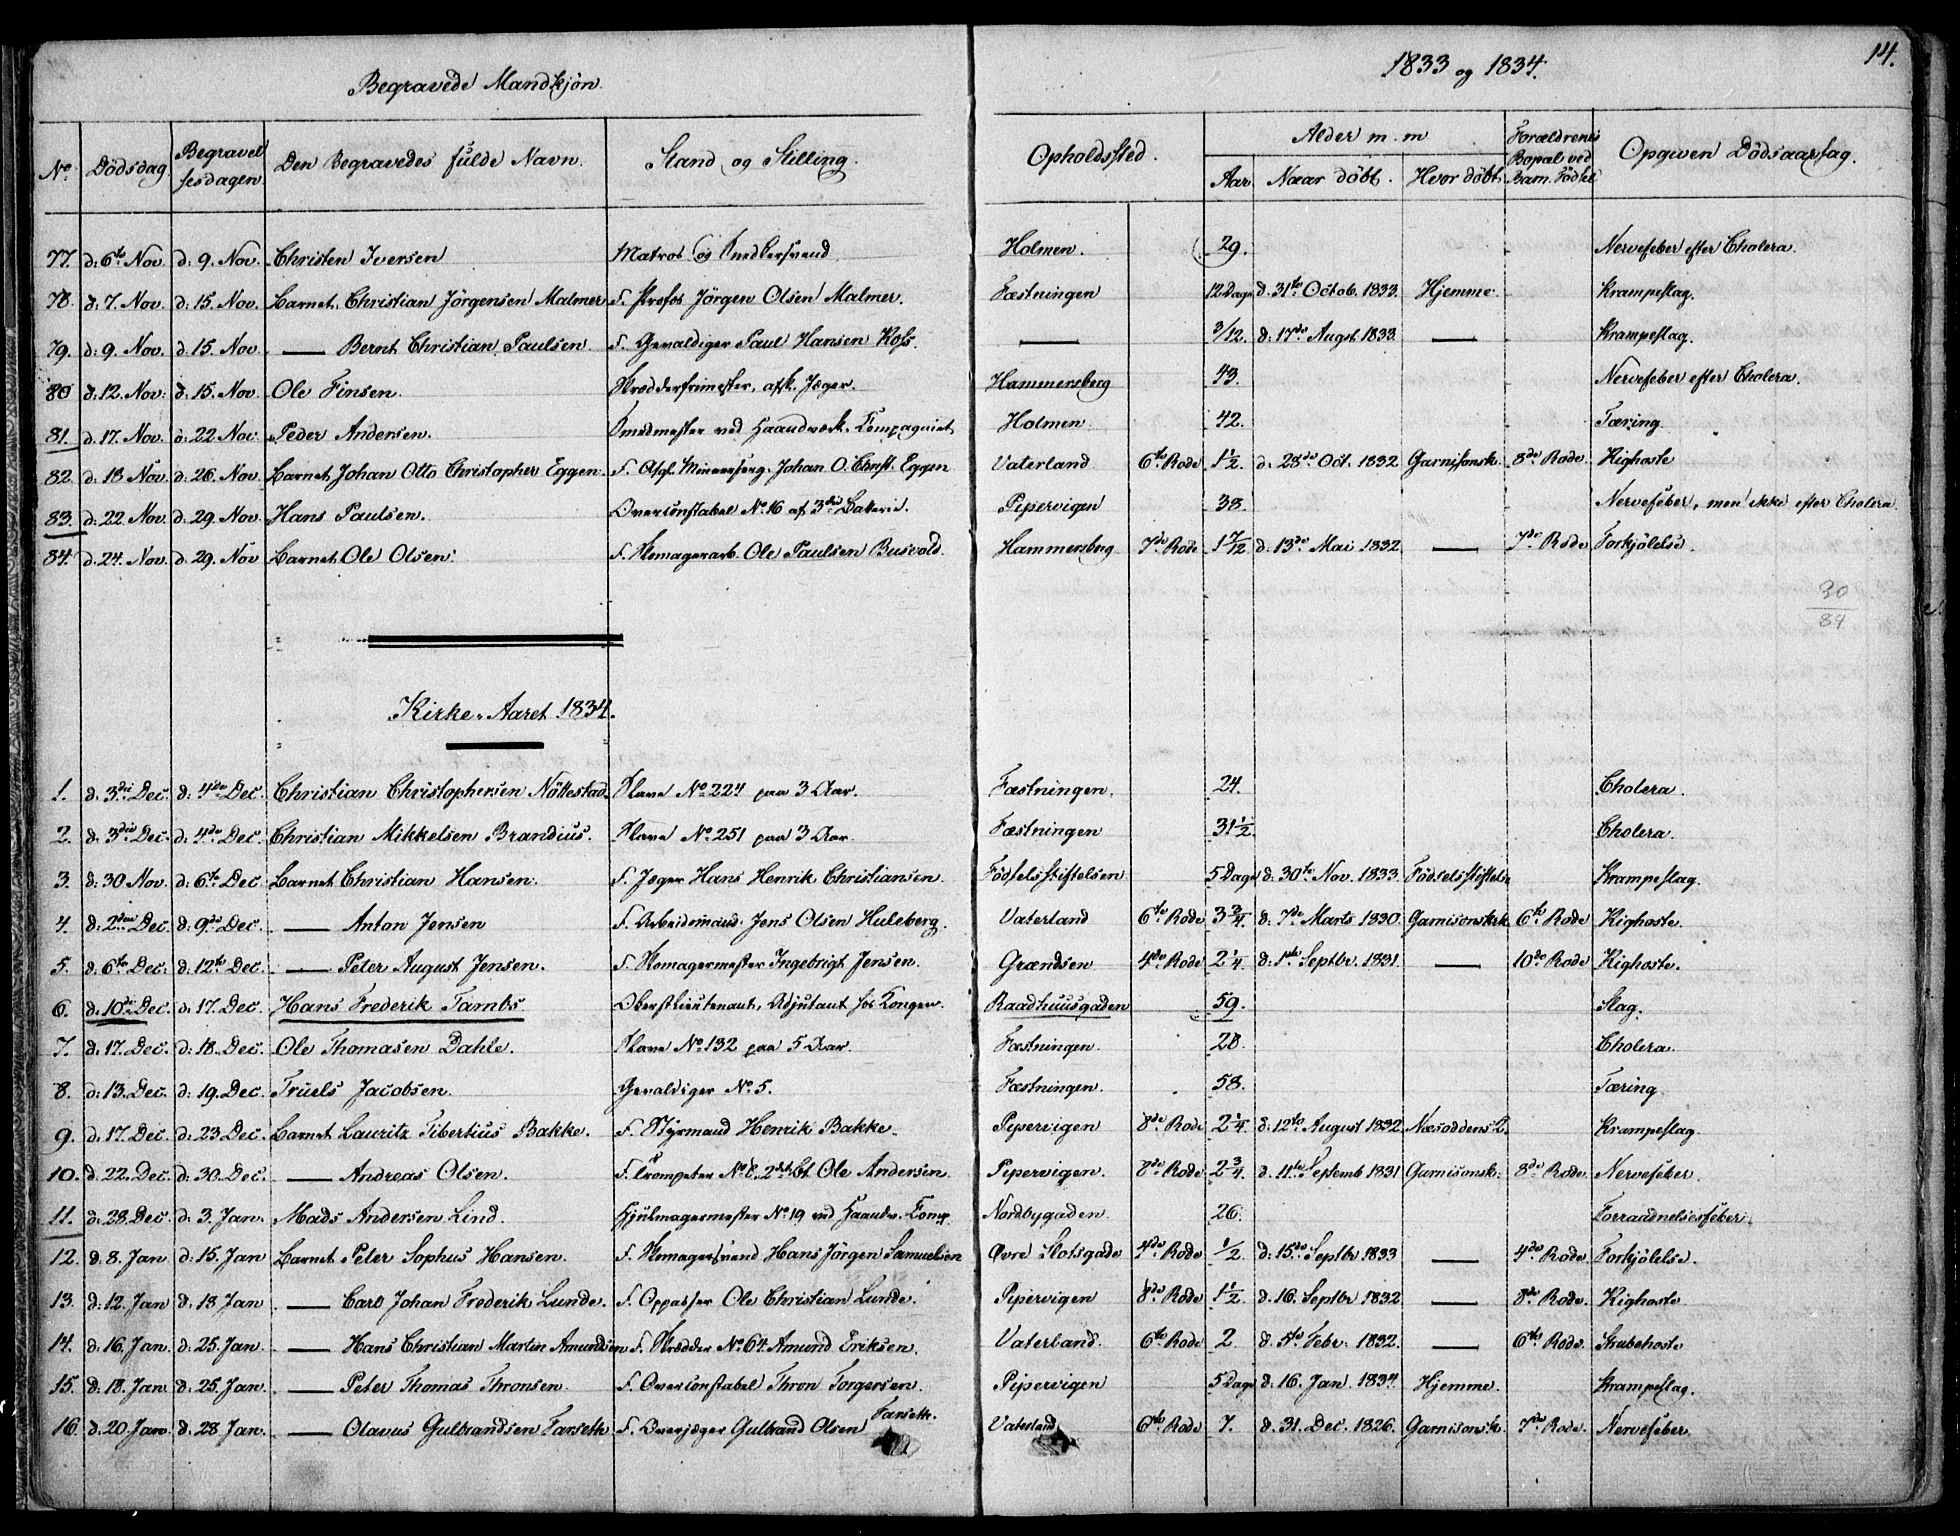 Begravede Mandkjøn.
1833 og 1834.
14.
No
Dödsdag
Begravelsesdagen
Den Begravedes fulde Navn.
Stand og Stilling.
Opholdssted.
Alder m. m
Aar
Naar döbt.
Hvor döbt
Forældrenes Bopæl ved Barn. Födsel
Opgiven Dödsaarsag.
77. d: 6te Nov d: 9. Nov. Christen Iversen Matros og Snedkersvend Holmen. 29. Nervefeber efter Cholera.
78. d: 7. Nov. d: 15. Nov. Barnet. Christian Jörgensen Malmer S. Profos Jörgen Olsen Malmer. Fæstningen 12 Dage d. 31te Octob. 1833. Hjemme. Krampeslag.
79. d: 9. Nov. d: 15. Nov — Bernt Christian Paulsen S. Gevaldiger Paul Hansen Ross. — 3/12. d: 17de Augst. 1833. — Krampeslag.
80 d: 12. Nov: d: 15. Nov Ole Finsen. Skrædderfrimester, afsk. Jæger. Hammersberg 43. Nervefeber efter Cholera.
81. d. 17. Nov. d. 22 Nov: Peder Andersen. Smedmester ved Haandværk. Compagniet Holmen 42. Tæring
82. d. 18 Nov. d: 26. Nov Barnet Johan Otto Christopher Eggen S. Afgl. Johan O. Chrst. Eggen Vaterland 6te Rode 1½. d. 28de Oct. 1832. Garnisonsk. 8de Rode. Kighoste
83. d: 22 Nov. d: 29. Nov Hans Paulsen. Overconstabel No. 16 af 3die Batteri. Pipervigen 38. Nervefeber, men ikke efter Cholera.
84. d. 24. Nov. d: 29. Nov Barnet Ole Olsen. S. Skomagerarb. Ole Paulsen Busvold. Hammersberg 7de Rode 1 7/12 d. 13de Mai 1832 — 7de Rode Forkjölelse.
30
84
Kirke-Aaret 1834.
1. d. 3die Dec. d: 4de Dec. Christian Christophersen Nöttestad. Slave No 224 paa 3 Aar. Fæstningen. 24. Cholera.
2. d: 3die Dec. d: 4de Dec. Christian Mikkelsen Brandius. Slave No. 251 paa 3 Aar Fæstningen 31½. Cholera.
3. d: 30 Nov. d: 6te Dec. Barnet Christian Hansen. S. Jæger Hans Henrik Christiansen. Födselsstiftelsen 5 Dage d. 30te Nov. 1833 Födselsstiftels. Krampeslag.
4. d: 2den Dec. d: 9de Dec. — Anton Jensen S. Arbeidsmand. Jens Olsen Huleberg. Vaterland 6te Rode 3¾. d: 7de Marts 1830 Garnisonskrk 6te Rode Kighoste.
5. d: 6te Dec: d: 12te Dec — Peter August Jensen. S. Skomagermester Ingebrigt Jensen. Grændsen 4de Rode 2¼. d: 1ste Septbr. 1831. — 10de Rode Kighoste.
6. d: 10de Dec. d: 17. Dec. Hans Frederik Tambs Oberstlieutenant, Adjutant hos Kongen. Raadhuusgaden 59. Slag.
7. d: 17. Dec. d: 18. Dec. Ole Thomasen Dahle. Slave No. 132 paa 5 Aar. Fæstningen. 28. Cholera.
8. d: 13. Dec. d: 19. Dec. Truels Jacobsen. Gevaldiger No. 5. Fæstningen. 58. Tæring.
9. d: 17. Dec. d: 23 Dec. Barnet Lauritz Tibertius Bakke. S. Styrmand Henrik Bakke. Pipervigen 8de Rode 2¼. d: 12te August 1832. Næsoddens 2. Krampeslag.
10. d: 22. Dec. d: 30. Dec. — Andreas Olsen. S. Trompeter No. 8. 2det Ole Andersen Pipervigen. 8de Rode 2¾. d. 11te Septemb 1831 Garnisonsk. 8de Rode. Nervefeber
11. d: 28. Dec d: 3. Jan. Mads Andersen Lind. Hjulmagermester No 19 ved Haandv. Comp. Nordbygaden. 26. Forraadnelsesfeber.
12. d: 8. Jan d: 15. Jan Barnet Peter Sophus Hansen. S. Skomagersvend Hans Jörgen Samuelsen Øvre Slotsgade 4de Rode ½. d: 15de Septbr 1833 — 4de Rode. Forkjölelse.
13. d: 12. Jan d: 18 Jan — Carl Johan Frederik Lunde. S. Oppasser Ole Christian Lunde. Pipervigen 8de Rode 1½. d. 16. Septbr 1832 — 8de Rode. Kighoste
14. d: 16. Jan. d: 25. Jan — Hans Christian Martin Amundsen S. Skrædder No. 64 Amund Eriksen. Vaterland. 6te Rode 2. d: 5te Febr. 1832. — 6te Rode. Strubehoste
15. d: 18. Jan. d: 25. Jan. — Peter Thomas Thronsen. S. Overconstabel Thron Torgersen. Pipervigen 5 Dage d: 16. Jan. 1834 Hjemme. Krampeslag.
16. d: 20 Jan. d: 28 Jan. — Olavus Gulbrandsen Farseth S. Overjæger Gulbrand Olsen Farseth. Vaterland 6te Rode 7. d. 31. Dec. 1826. Garnisonsk. 7de Rode. Nervefeber